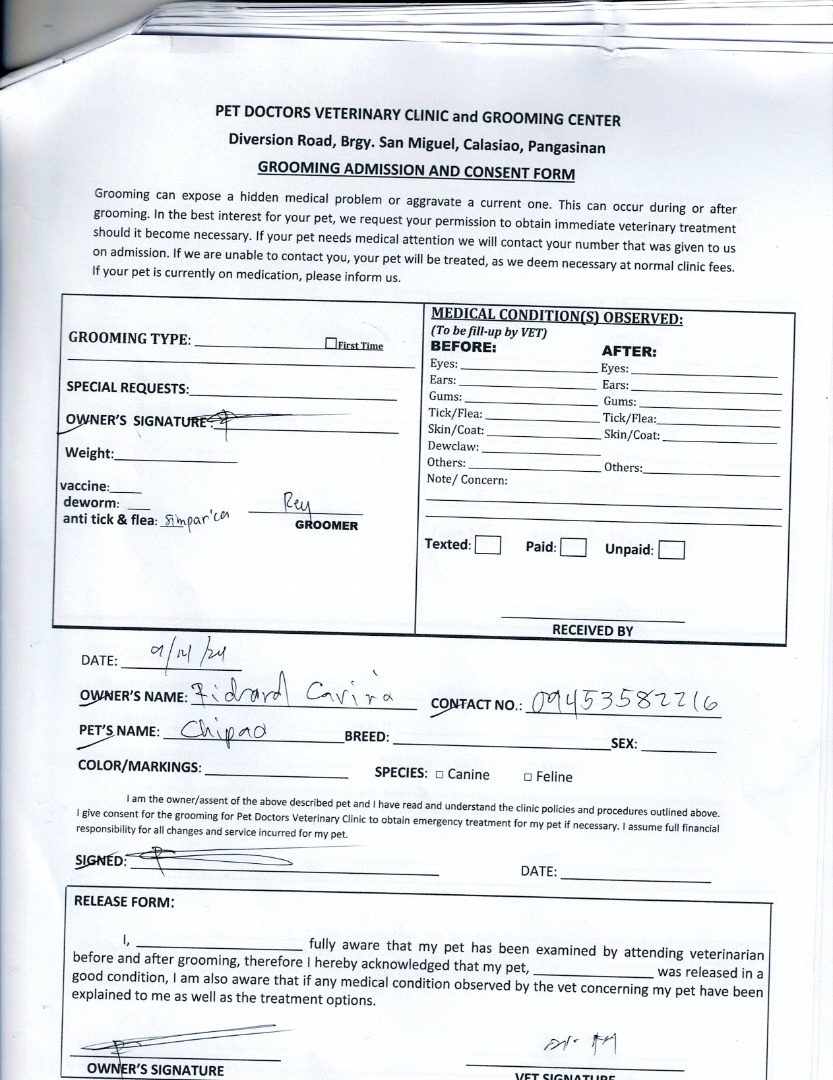 PET DOCTORS VETERINARY CLINIC and GROOMING CENTER
Diversion Road, Brgy. San Miguel, Calasiao, Pangasinan
GROOMING ADMISSION AND CONSENT FORM
Grooming can expose a hidden medical problem or aggravate a current one. This can occur during or after
grooming. In the best interest for your pet, we request your permission to obtain immediate veterinary treatment
should it become necessary. If your pet needs medical attention we will contact your number that was given to us
on admission. If we are unable to contact you, your pet will be treated, as we deem necessary at normal clinic fees.
If your pet is currently on medication, please inform us.
GROOMING TYPE: First Time
SPECIAL REQUESTS:
OWNER'S SIGNATURE:
Weight:
vaccine:
deworm:
anti tick & flea: Simparica
Rey
GROOMER
MEDICAL CONDITION(S) OBSERVED:
(To be fill-up by VET)
BEFORE: AFTER:
Eyes: Eyes:
Ears: Ears:
Gums: Gums:
Tick/Flea: Tick/Flea:
Skin/Coat: Skin/Coat:
Dewclaw:
Others: Others:
Note/ Concern:
Texted: Paid: Unpaid:
RECEIVED BY
DATE:
OWNER'S NAME: CONTACT NO.: 09453582216
PET'S NAME: Chipao BREED: SEX:
COLOR/MARKINGS: SPECIES: Canine Feline
I am the owner/assent of the above described pet and I have read and understand the clinic policies and procedures outlined above.
I give consent for the grooming for Pet Doctors Veterinary Clinic to obtain emergency treatment for my pet if necessary. I assume full financial
responsibility for all changes and service incurred for my pet.
SIGNED: DATE:
RELEASE FORM:
I, fully aware that my pet has been examined by attending veterinarian
before and after grooming, therefore I hereby acknowledged that my pet, was released in a
good condition, I am also aware that if any medical condition observed by the vet concerning my pet have been
explained to me as well as the treatment options.
OWNER'S SIGNATURE VET SIGNATURE